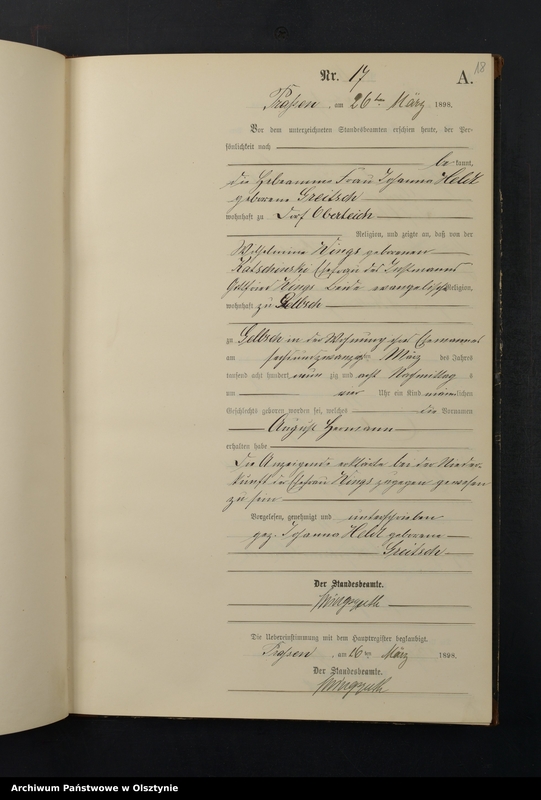 18
Nr. 17 A.
Prassen am 26ten März 1898.
Vor dem unterzeichneten Standesbeamten erschien heute, der Per-
sönlichkeit nach
bekannt,
die Hebeamme Frau Johanna Heldt
geborene Greitsch
wohnhaft zu Dorf Oberteich
Religion, und zeigte an, daß von der
Wilhelmine Kings geborenen
Ehefrau des Instmanns
Gottfried Kings beide evangelischer Religion,
wohnhaft zu
zu in der Wohnung ihres Ehemannes
am sechsundzwanzigsten März des Jahres
tausend acht hundert neun zig und acht Nachmittag s
um vier Uhr ein Kind männlichen
Geschlechts geboren worden sei, welches die Vornamen
August Hermann
erhalten habe
Die Anzeigende erklärte bei der Nieder-
kunft der Ehefrau Kings zugegen gewesen
zu sein
Vorgelesen, genehmigt und unterschrieben
gez. Johanna Heldt geborene
Greitsch
Der Standesbeamte.
Die Uebereinstimmung mit dem Hauptregister beglaubigt.
Prassen am 26ten März 1898.
Der Standesbeamte.
Archiwum Państwowe w Olsztynie